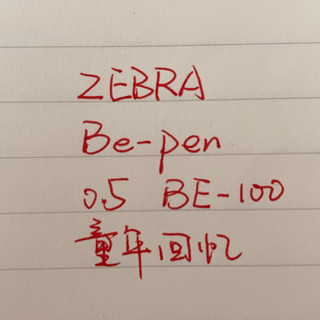 ZEBRA
Be-pen
0.5 BE-100
童年回忆